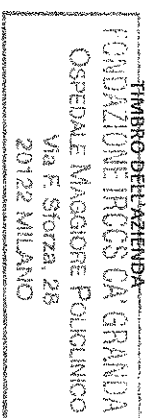 TIMBRO DELL'AZIENDA
FONDAZIONE IRCCS CA' GRANDA
OSPEDALE MAGGIORE POLICLINICO
Via F. Sforza, 28
20122 MILANO